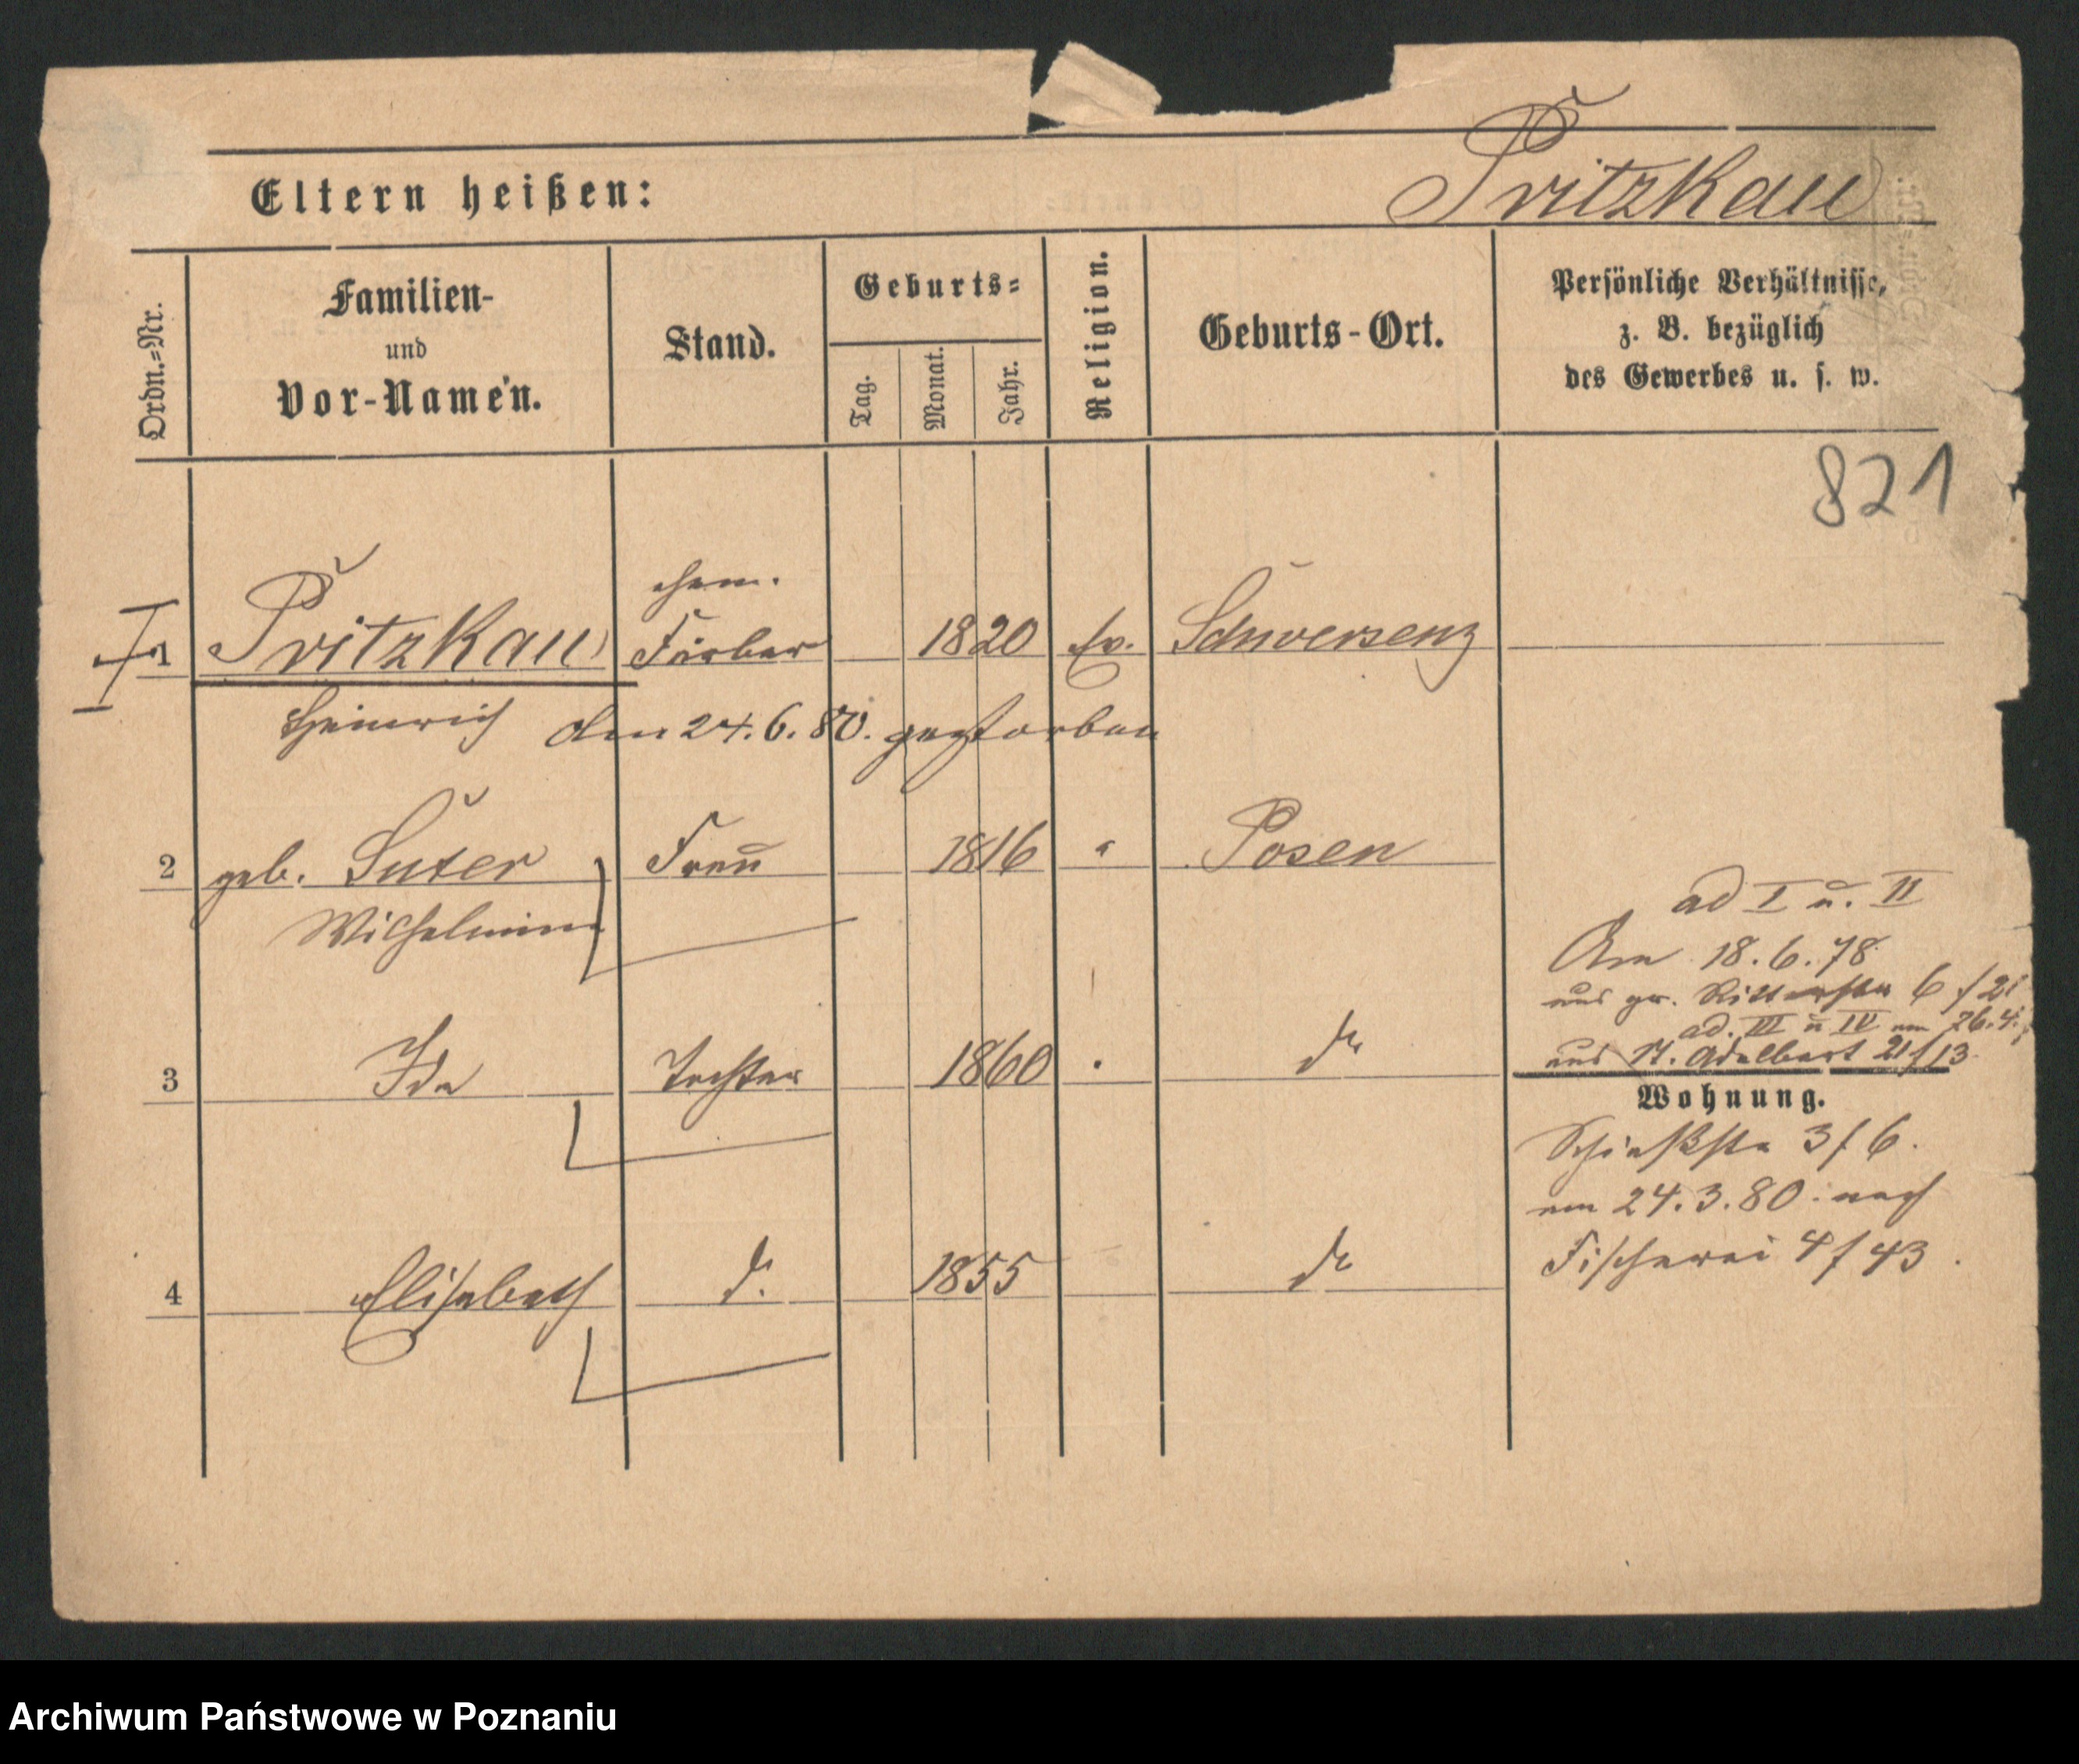 Eltern heißen:
Pritzkau
Ordn.=Nr.
Familien-
und
Vor-Namen.
Stand.
Geburts=
Tag.
Monat.
Jahr.
Religion.
Geburts-Ort.
Persönliche Verhältnisse,
z. B. bezüglich
des Gewerbes u. s. w.
821
ehem.
1 Pritzkau Färber 1820 Ev. Schwersenz
Heinrich den 24.6.80. gestorben
2 geb. Suter Frau 1816 " Posen
Wilhelmine
ad I u. II
Am 18.6.78
aus gr. Ritterstr 6 / 21
ad. III u IV am 26.4.
aus St. Adalbert 21/13
3 Ida Tochter 1860 " do
Wohnung.
Schießstr 3/6.
am 24.3.80. nach
Fischerei 4/43.
4 Elisabeth do. 1855 do
Archiwum Państwowe w Poznaniu